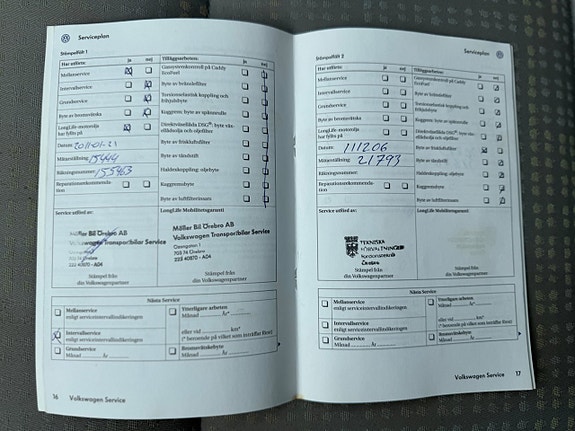 Serviceplan
Stämpelfält 1
Har utförts: ja nej
Mellanservice
Intervallservice
Grundservice
Byte av bromsvätska
LongLife-motorolja
har fyllts på
Datum: 2011-01-21
Mätarställning: 15444
Räkningsnummer: 155463
Reparationsrekommenda-
tion
Tilläggsarbeten: ja nej
Gassystemkontroll på Caddy
EcoFuel
Byte av bränslefilter
Torsionselastisk koppling och
frihjulsbyte
Kuggrem: byte av spännrulle
Direktväxellåda DSG®: byte väx-
ellådsolja och oljefilter
Byte av friskluftsfilter
Byte av tändstift
Haldexkoppling: oljebyte
Kuggremsbyte
Byte av luftfilterinsats
Service utförd av:
LongLife Mobilitetsgaranti
Möller Bil Örebro AB
Volkswagen Transportbilar Service
703 74 Örebro
223 40870 - AO4
Möller Bil Örebro AB
Volkswagen Transportbilar Service
Osengatan 1
703 74 Örebro
223 40870 - AO4
Stämpel från
din Volkswagenpartner
Stämpel från
din Volkswagenpartner
Nästa Service
Mellanservice
enligt serviceintervallindikeringen
Intervallservice
enligt serviceintervallindikeringen
Grundservice
Månad År
Ytterligare arbeten
Månad År*
eller vid km*
(* beroende på vilket som inträffar först)
Bromsvätskebyte
Månad År
16 Volkswagen Service
Serviceplan
Stämpelfält 2
Har utförts: ja nej
Mellanservice
Intervallservice
Grundservice
Byte av bromsvätska
LongLife-motorolja
har fyllts på
Datum: 111206
Mätarställning: 21793
Räkningsnummer:
Reparationsrekommenda-
tion
Tilläggsarbeten: ja nej
Gassystemkontroll på Caddy
EcoFuel
Byte av bränslefilter
Torsionselastisk koppling och
frihjulsbyte
Kuggrem: byte av spännrulle
Direktväxellåda DSG®: byte väx-
ellådsolja och oljefilter
Byte av friskluftsfilter
Byte av tändstift
Haldexkoppling: oljebyte
Kuggremsbyte
Byte av luftfilterinsats
Service utförd av:
LongLife Mobilitetsgaranti
TEKNISKA
Örebro
Stämpel från
din Volkswagenpartner
Stämpel från
din Volkswagenpartner
Nästa Service
Mellanservice
enligt serviceintervallindikeringen
Intervallservice
enligt serviceintervallindikeringen
Grundservice
Månad År
Ytterligare arbeten
Månad År*
eller vid km*
(* beroende på vilket som inträffar först)
Bromsvätskebyte
Månad År
Volkswagen Service 17